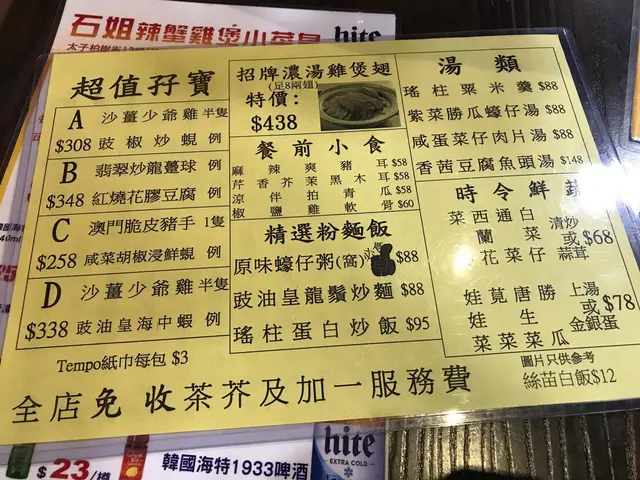 石姐辣蟹雞煲小菜皇
hite
超值孖寶
A 沙薑少爺雞 半隻
$308 豉椒炒蜆 例
B 翡翠炒龍躉球 例
$348 紅燒花膠豆腐 例
C 澳門脆皮豬手 1隻
$258 咸菜胡椒浸鮮蜆 例
D 沙薑少爺雞 半隻
$338 豉油皇海中蝦 例
Tempo紙巾每包 $3
招牌濃湯雞煲翅
(足8兩翅)
特價:
$438
餐前小食
麻辣爽豬耳 $58
芹香芥茉黑木耳 $58
涼伴拍青瓜 $58
椒鹽雞軟骨 $60
精選粉麵飯
原味蠔仔粥(窩) $88
豉油皇龍鬚炒麵 $88
瑤柱蛋白炒飯 $95
湯類
瑤柱粟米羹 $88
紫菜勝瓜蠔仔湯 $88
咸蛋菜仔肉片湯 $88
香茜豆腐魚頭湯 $148
時令鮮蔬
菜西通白 清炒
蘭菜 或 $68
花菜仔 蒜茸
娃莧唐勝 上湯
娃生 或 $78
菜菜菜瓜 金銀蛋
圖片只供參考
絲苗白飯$12
全店免收茶芥及加一服務費
$23/樽
韓國海特1933啤酒
hite
EXTRA COLD